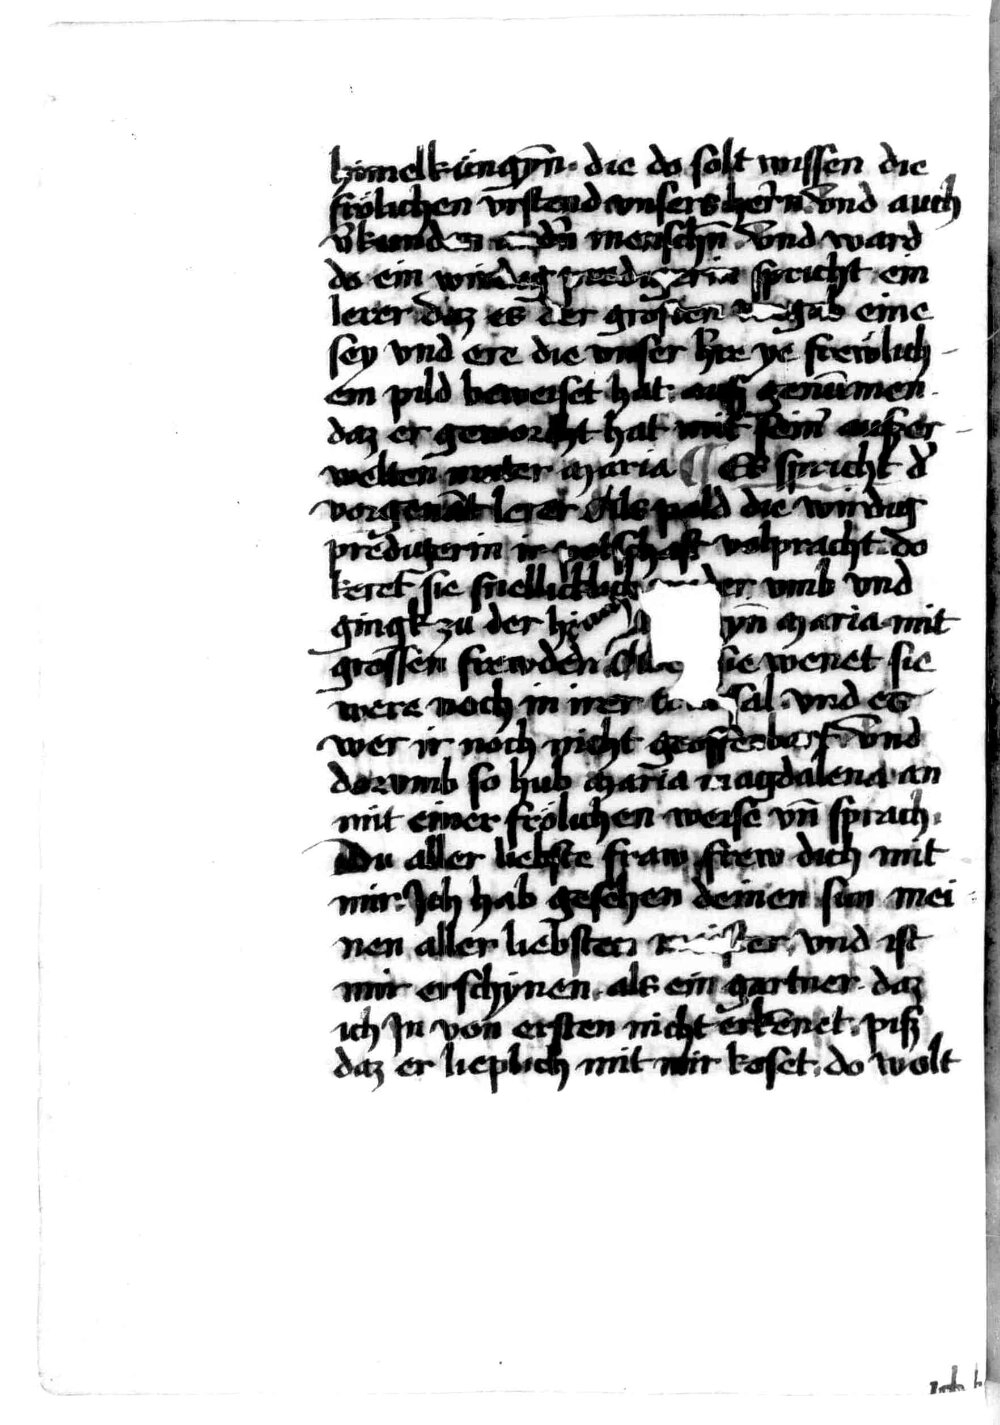 himelküngȳn · die do solt wissen die
frölichen vrstend vnsers herr̄n vnd auch
v̾kunden den menschn̄ · Vnd ward
do ein wirdeg predigaria spricht ein
lerer daz es der grosten eine
sey vnd ere die vnser h̾re ye frewlich
em pild beweiset hat · auß genūmen ·
daz er geworcht hat mit sein̄ außer
welten muter maria ¶ Es spricht d̾
vorgenāt lerer Als pald die wirdig
predigerin ir potschaft volpracht · do
keret sie snellicklich vmb vnd
gingk zu der yn̄ maria mit
grossen frewden sie wenet sie
were noch in irer sal · vnd es
wer ir noch nicht geoffēbart · Vnd
dorvmb so hub maria magdalena an
mit einer frölichen weise vn̄ sprach ·
Du aller liebste fraw frew dich mit
mir · Ich hab gesehen deinen sun mei
nen aller liebsten meister · vnd ist
mir erschynen · als ein gartner · daz
ich Jn von ersten nicht erkēnet · piß
daz er lieplich mit mir koset · do wolt